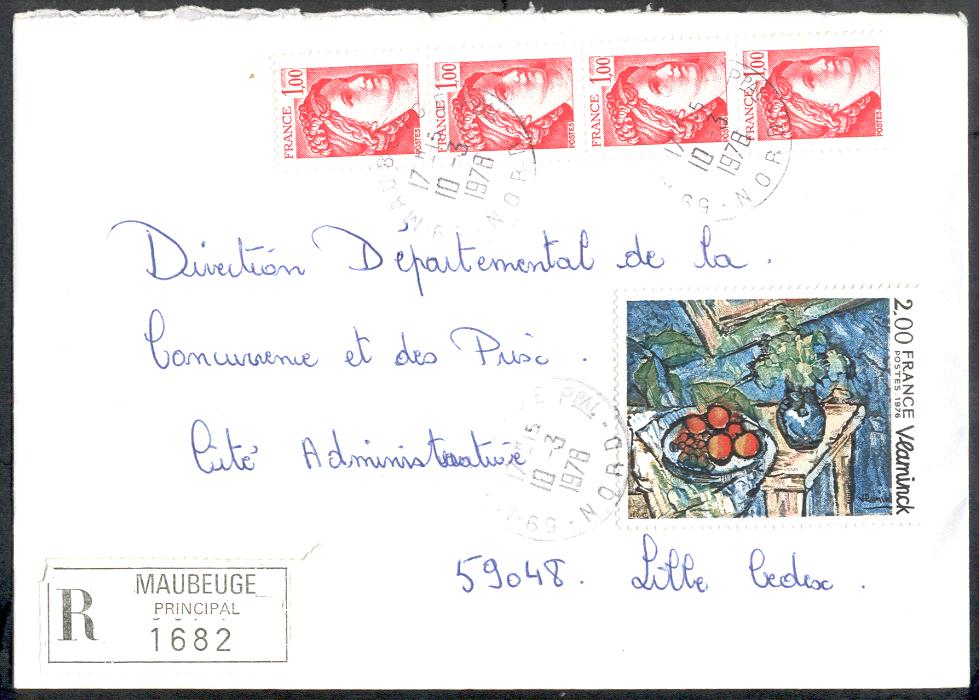 FRANCE 1,00 POSTES
FRANCE 1,00 POSTES
FRANCE 1,00 POSTES
FRANCE 1,00 POSTES
17-15
10-3
1978
59-M
NORD
17-15
10-3
1978
PPAL
59
NORD
Direction Départemental de la .
Concurrence et des Prix .
Cité Administrative
2,00 FRANCE Vlaminck
POSTES 1976
17-15
10-3
1978
E PPAL
59-M
NORD
59048. Lille Cedex .
R
MAUBEUGE
PRINCIPAL
1682